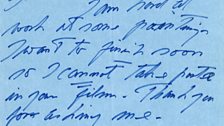 I am hard at
work at some paintings
I want to finish soon
so I cannot take part
in your Film. Thank you
for asking me.